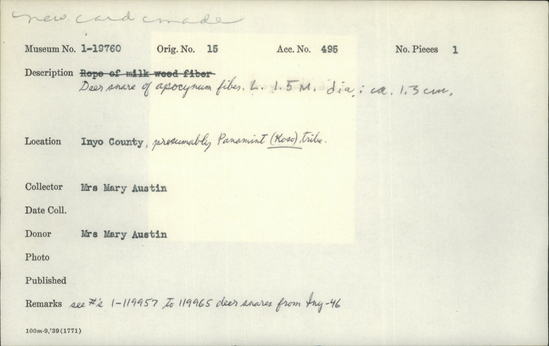 new card made
Museum No. 1-19760 Orig. No. 15 Acc. No. 495 No. Pieces 1
Description Rope of milk weed fiber
Deer snare of apocynum fiber. L. 1.5 M. dia.: ca. 1.3 cm.
Location Inyo County, presumably Panamint (Koso) tribe.
Collector Mrs Mary Austin
Date Coll.
Donor Mrs Mary Austin
Photo
Published
Remarks see #'s 1-119957 to 119965 deer snares from Iny-46
100m-9,'39(1771)